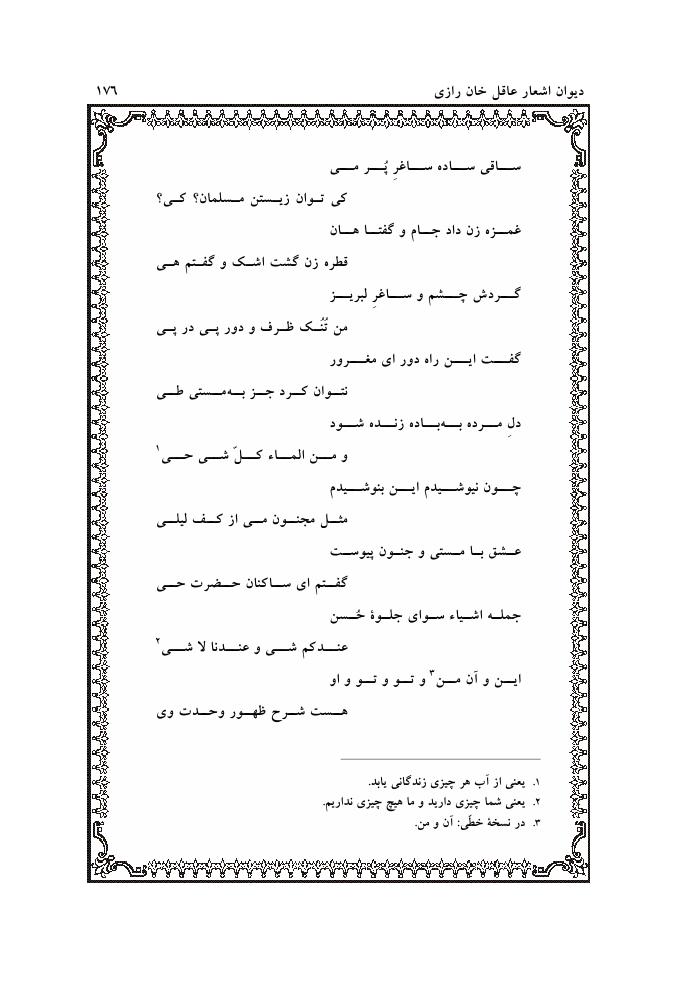 دیوان اشعار عاقل خان رازی ۱۷۶
ساقی ساده ساغرِ پُر می
کی توان زیستن مسلمان؟ کی؟
غمزه زن داد جام و گفتا هان
قطره زن گشت اشک و گفتم هی
گردش چشم و ساغرِ لبریز
من تُنُک ظرف و دور پی در پی
گفت این راه دور ای مغرور
نتوان کرد جز به‌مستی طی
دلِ مرده به‌باده زنده شود
و من الماء کلّ شی حی۱
چون نیوشیدم این بنوشیدم
مثل مجنون می از کف لیلی
عشق با مستی و جنون پیوست
گفتم ای ساکنان حضرت حی
جمله اشیاء سوای جلوۀ حُسن
عندکم شی و عندنا لا شی۲
این و آن من۳ و تو و تو و او
هست شرح ظهور وحدت وی
۱. یعنی از آب هر چیزی زندگانی یابد.
۲. یعنی شما چیزی دارید و ما هیچ چیزی نداریم.
۳. در نسخۀ خطّی: آن و من.